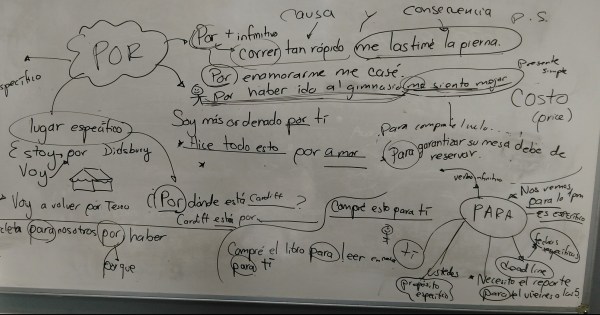 Causa y Consecuencia P.S.
POR
Por + infinitivo
Correr tan rápido me lastimé la pierna.
Presente simple
Por enamorarme me casé.
específico
Por haber ido al gimnasio me siento mejor
Costo
(price)
lugar específico
Soy más ordenado por ti
Para
Estoy por Didsbury
Voy
* Hice todo esto por amor
Para garantizar su mesa debe de reservar.
verbo infinitivo
* Voy a volver por
¿Por dónde está Cardiff?
Cardiff está por
Compré esto para ti
PARA
Nos vemos,
para la 1pm
es específico
para nosotros por haber
porque
Compré el libro para leer
para ti
ti
ustedes
propósito específico
deadline
fechas específicas
* Necesito el reporte
para el viernes a las 5